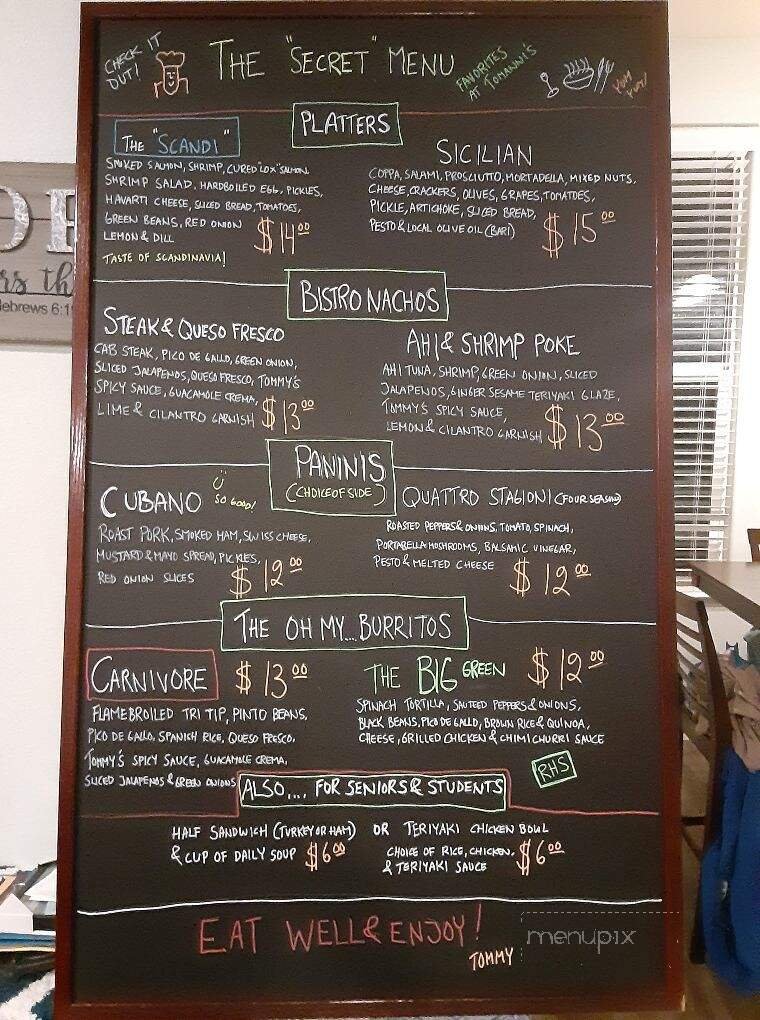 CHECK IT
OUT!
THE "SECRET" MENU
FAVORITES
AT TOMANNI'S
YUM
YUM!
PLATTERS
THE "SCANDI"
SMOKED SALMON, SHRIMP, CURED "LOX" SALMON
SHRIMP SALAD, HARDBOILED EGG, PICKLES,
HAVARTI CHEESE, SLICED BREAD, TOMATOES,
GREEN BEANS, RED ONION
LEMON & DILL
$14.00
TASTE OF SCANDINAVIA!
SICILIAN
COPPA, SALAMI, PROSCIUTTO, MORTADELLA, MIXED NUTS,
CHEESE, CRACKERS, OLIVES, GRAPES, TOMATOES,
PICKLE, ARTICHOKE, SLICED BREAD,
PESTO & LOCAL OLIVE OIL (BARI)
$15.00
BISTRO NACHOS
STEAK & QUESO FRESCO
CAB STEAK, PICO DE GALLO, GREEN ONION,
SLICED JALAPENOS, QUESO FRESCO, TOMMY'S
SPICY SAUCE, GUACAMOLE CREMA,
LIME & CILANTRO GARNISH $13.00
AHI & SHRIMP POKE
AHI TUNA, SHRIMP, GREEN ONION, SLICED
JALAPENOS, GINGER SESAME TERIYAKI GLAZE,
TOMMY'S SPICY SAUCE,
LEMON & CILANTRO GARNISH $13.00
PANINIS
(CHOICE OF SIDE)
CUBANO
SO GOOD!
ROAST PORK, SMOKED HAM, SWISS CHEESE,
MUSTARD & MAYO SPREAD, PICKLES,
RED ONION SLICES
$12.00
QUATTRO STAGIONI (FOUR SEASON)
ROASTED PEPPERS & ONIONS, TOMATO, SPINACH,
PORTABELLA MUSHROOMS, BALSAMIC VINEGAR,
PESTO & MELTED CHEESE $12.00
THE OH MY... BURRITOS
CARNIVORE $13.00
FLAMEBROILED TRI TIP, PINTO BEANS,
PICO DE GALLO, SPANISH RICE, QUESO FRESCO,
TOMMY'S SPICY SAUCE, GUACAMOLE CREMA,
SLICED JALAPENOS & GREEN ONIONS
THE BIG GREEN $12.00
SPINACH TORTILLA, SAUTEED PEPPERS & ONIONS,
BLACK BEANS, PICO DE GALLO, BROWN RICE & QUINOA,
CHEESE, GRILLED CHICKEN & CHIMICHURRI SAUCE
RHS
ALSO.... FOR SENIORS & STUDENTS
HALF SANDWICH (TURKEY OR HAM) OR TERIYAKI CHICKEN BOWL
& CUP OF DAILY SOUP $6.00
CHOICE OF RICE, CHICKEN,
& TERIYAKI SAUCE
$6.00
EAT WELL & ENJOY!
TOMMY
menupix
Hebrews 6:19